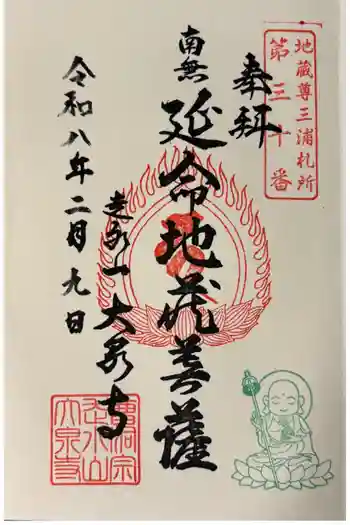 地蔵尊三浦札所
第三十番
奉拝
南無
延命地蔵菩薩
走水山
大泉寺
令和八年二月九日
曹洞宗
走水山
大泉寺